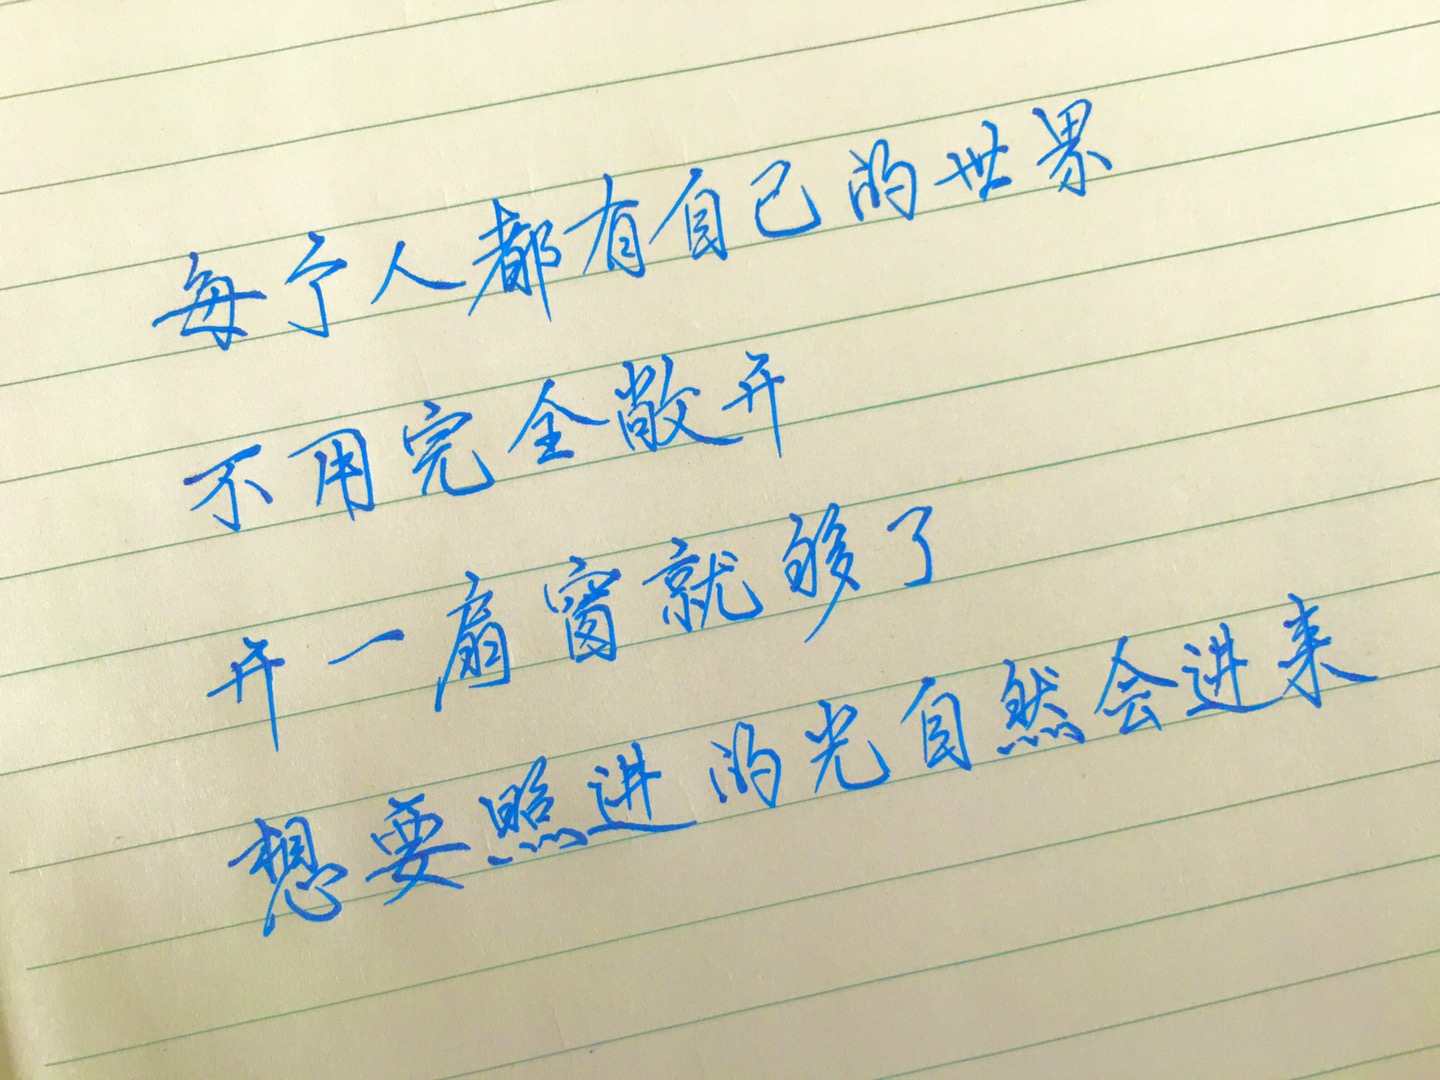 每个人都有自己的世界
不用完全敞开
开一扇窗就够了
想要照进的光自然会进来